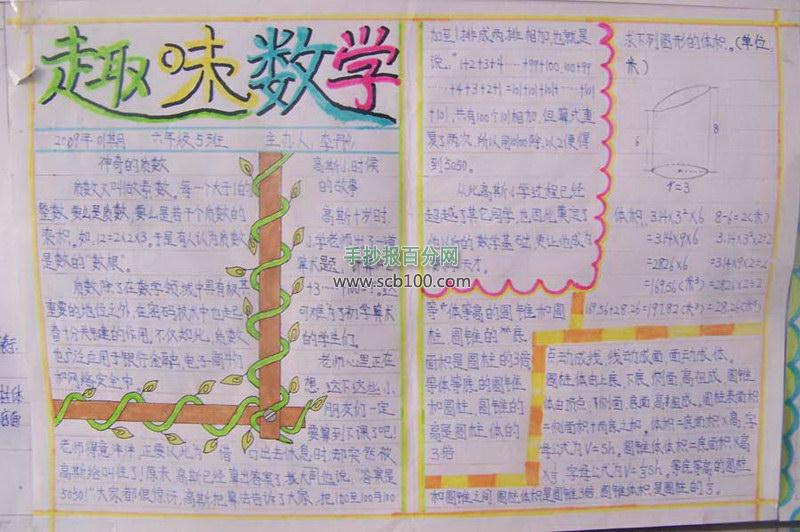 趣味数学
2009年01期 六年级5班 主办人
神奇的质数
质数又叫做素数。每一个大于1的
整数,要么是质数,要么是若干个质数的
乘积。如,12=2×2×3。于是有人认为质数
是数的“数根”。
质数除了在数学领域中具有极其
重要的地位之外,在密码技术中也起
着十分关键的作用,不仅如此,质数
也广泛应用于银行金融,电子商
和网络安全中
高斯小时候
的故事
高斯十岁时,
小学老师出了一道
算术题
+3
可难为了初学算术
的学生们。
老师心里正在
想,这下这些小
朋友们一定
要算到下课了吧!
老师得意洋洋,正要从此为借口出去休息时,却突然被
高斯给叫住了!原来,高斯已经算出答案了,
他说,“答案是
5050!”大家都很惊讶,高斯把算法告诉了大家,把1加至100与100
加至1排成两排相加,也就是
说。“1+2+3+4……+99+100,100+99
……+4+3+2+1=101+101+101+……+101
+101,共有100个101相加,但算式重
复了两次,所以用10100除以2便得
到5050。
从此高斯小学过程已经
超越了其它同学,也因此奠定了
他以后的数学基础,更让他成为
求下列图形的体积。(单位,
米)
6
8
r=3
体积 3.14×3²×6 8-6=2(米)
=3.14×9×6 3.14×3²×2÷2
=28.26×6 =3.14×9×2÷2
=169.56(米³) =28.26×2÷2
169.56+28.26=197.82(米³) =28.26(米³)
等体等高的圆锥和圆
柱,圆锥的底
面积是圆柱的3倍
等体等底的圆锥
和圆柱,圆锥的
高是圆柱体的
3倍
点动成线,线动成面,面动成体。
圆柱体由上底,下底,侧面,高组成,圆锥
体由顶点,侧面,底面,高组成。圆柱表面积
=侧面积+两底之和,体积=底面积×高,字
母公式为V=Sh。圆锥体体积=底面积×高
×⅓,字母公式为V=⅓Sh。等底等高的圆柱
和圆锥之间,圆柱体积是圆锥3倍,圆锥体积是圆柱的⅓。
手抄报百分网
www.scb100.com
柱体
底面